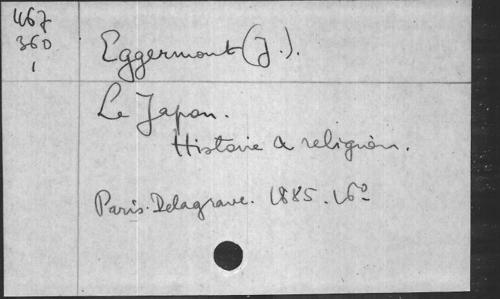 467
360
1
Eggermont (J.).
Le Japon.
Histoire & religion.
Paris. Delagrave. 1885. 16º